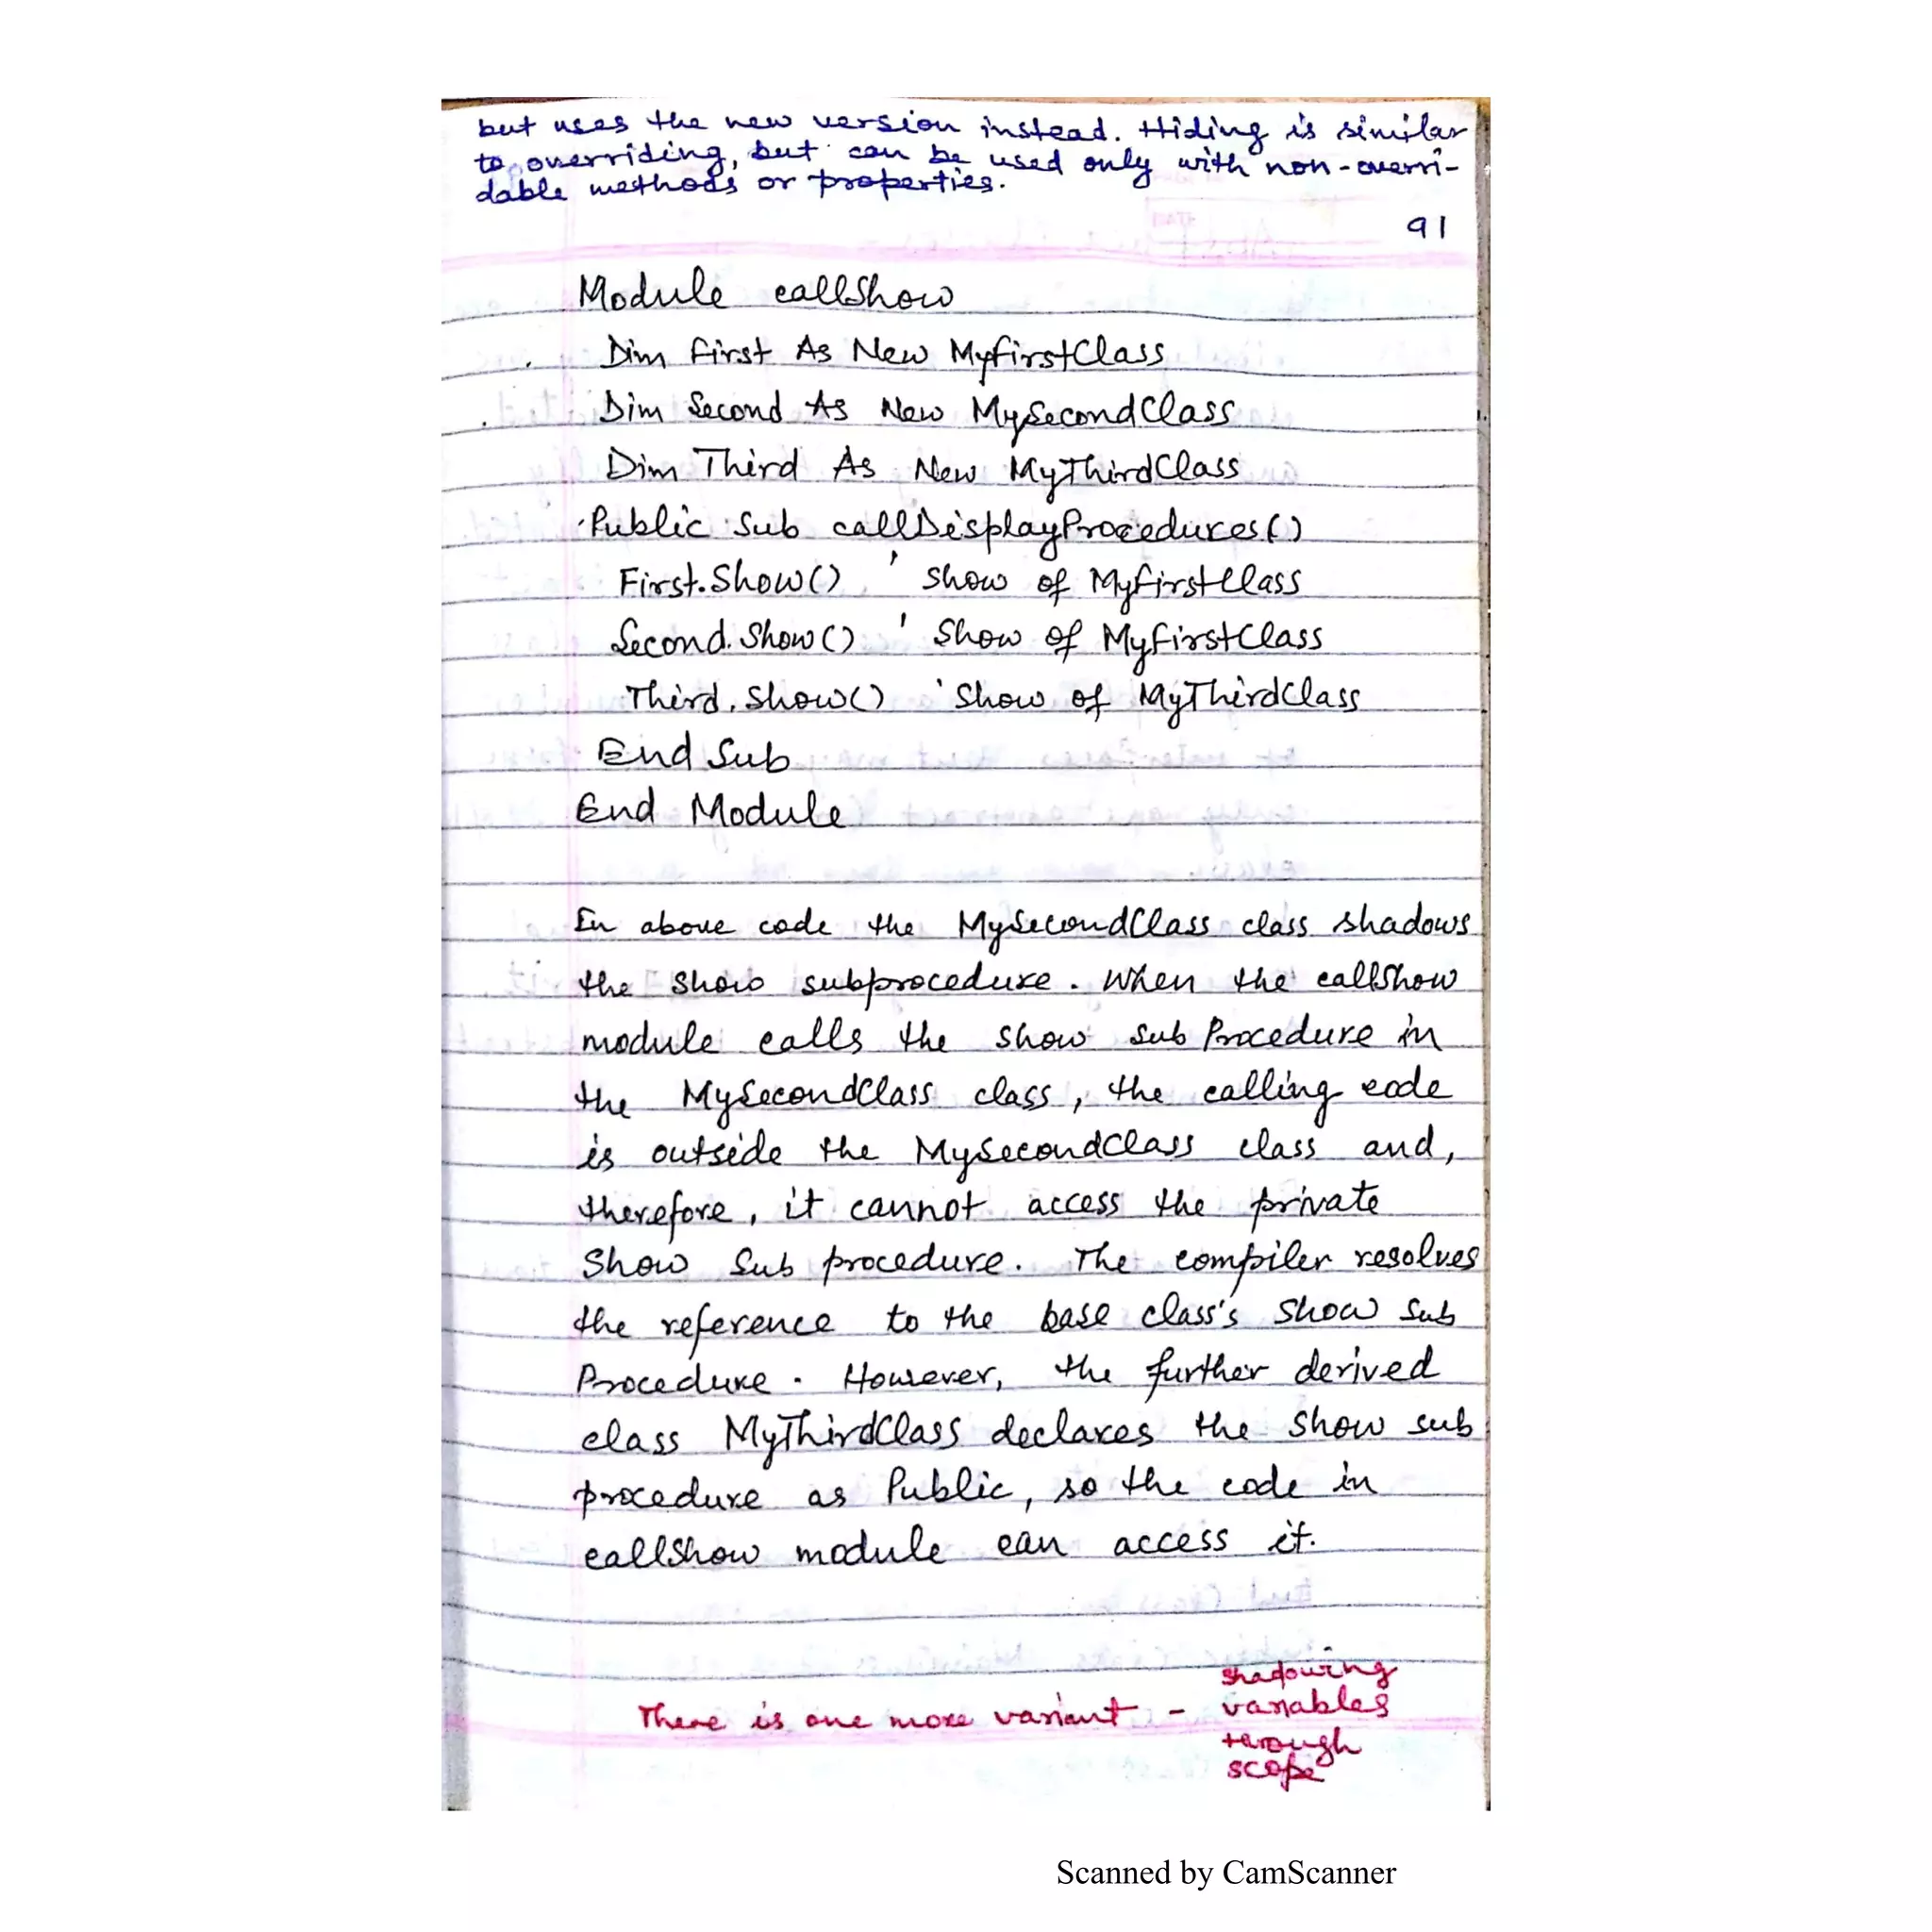 but uses the new version instead. Hiding is similar
to overriding, but can be used only with non-overri-
dable methods or properties.
91
Module callShow
Dim First As New MyFirstClass
Dim Second As New MySecondClass
Dim Third As New MyThirdClass
Public Sub callDisplayProcedures()
First.Show() ' Show of MyFirstClass
Second.Show() ' Show of MyFirstClass
Third.Show() ' Show of MyThirdClass
End Sub
End Module
In above code the MySecondClass class shadows
the Show subprocedure. When the callShow
module calls the Show Sub Procedure in
the MySecondClass class, the calling code
is outside the MySecondClass class and,
therefore, it cannot access the private
Show Sub procedure. The compiler resolves
the reference to the base class's Show Sub
Procedure. However, the further derived
class MyThirdClass declares the Show sub
procedure as Public, so the code in
callShow module can access it.
There is one more variant - shadowing
variables
through
scope
Scanned by CamScanner